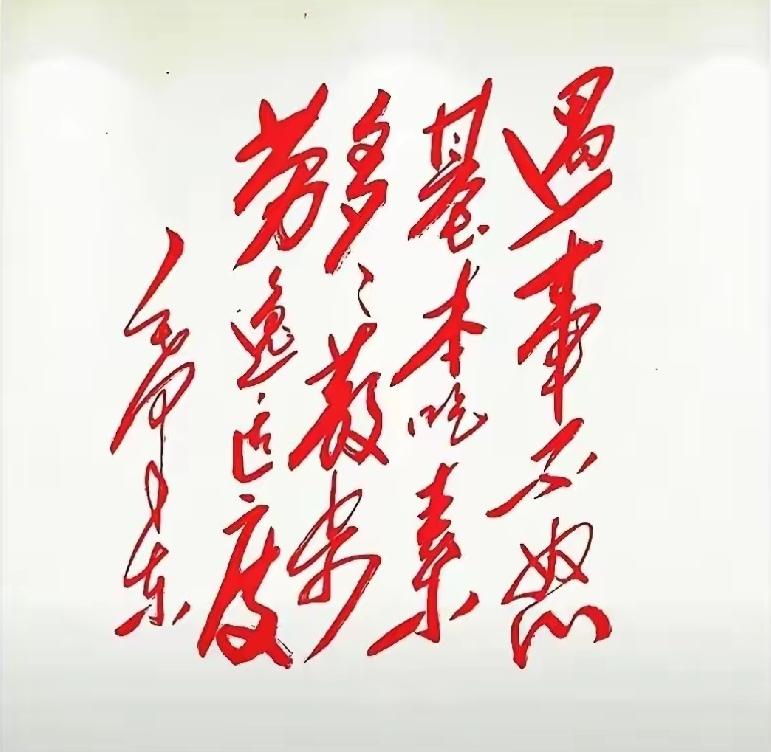 遇事不怒
基本吃素
多多散步
劳逸适度
毛泽东